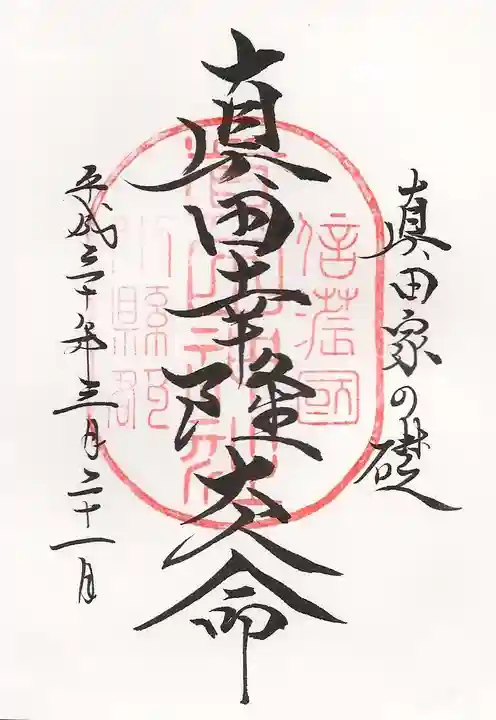 真田家の礎
信濃國
真田幸隆大人命
小縣郡
平成三十年三月二十一日